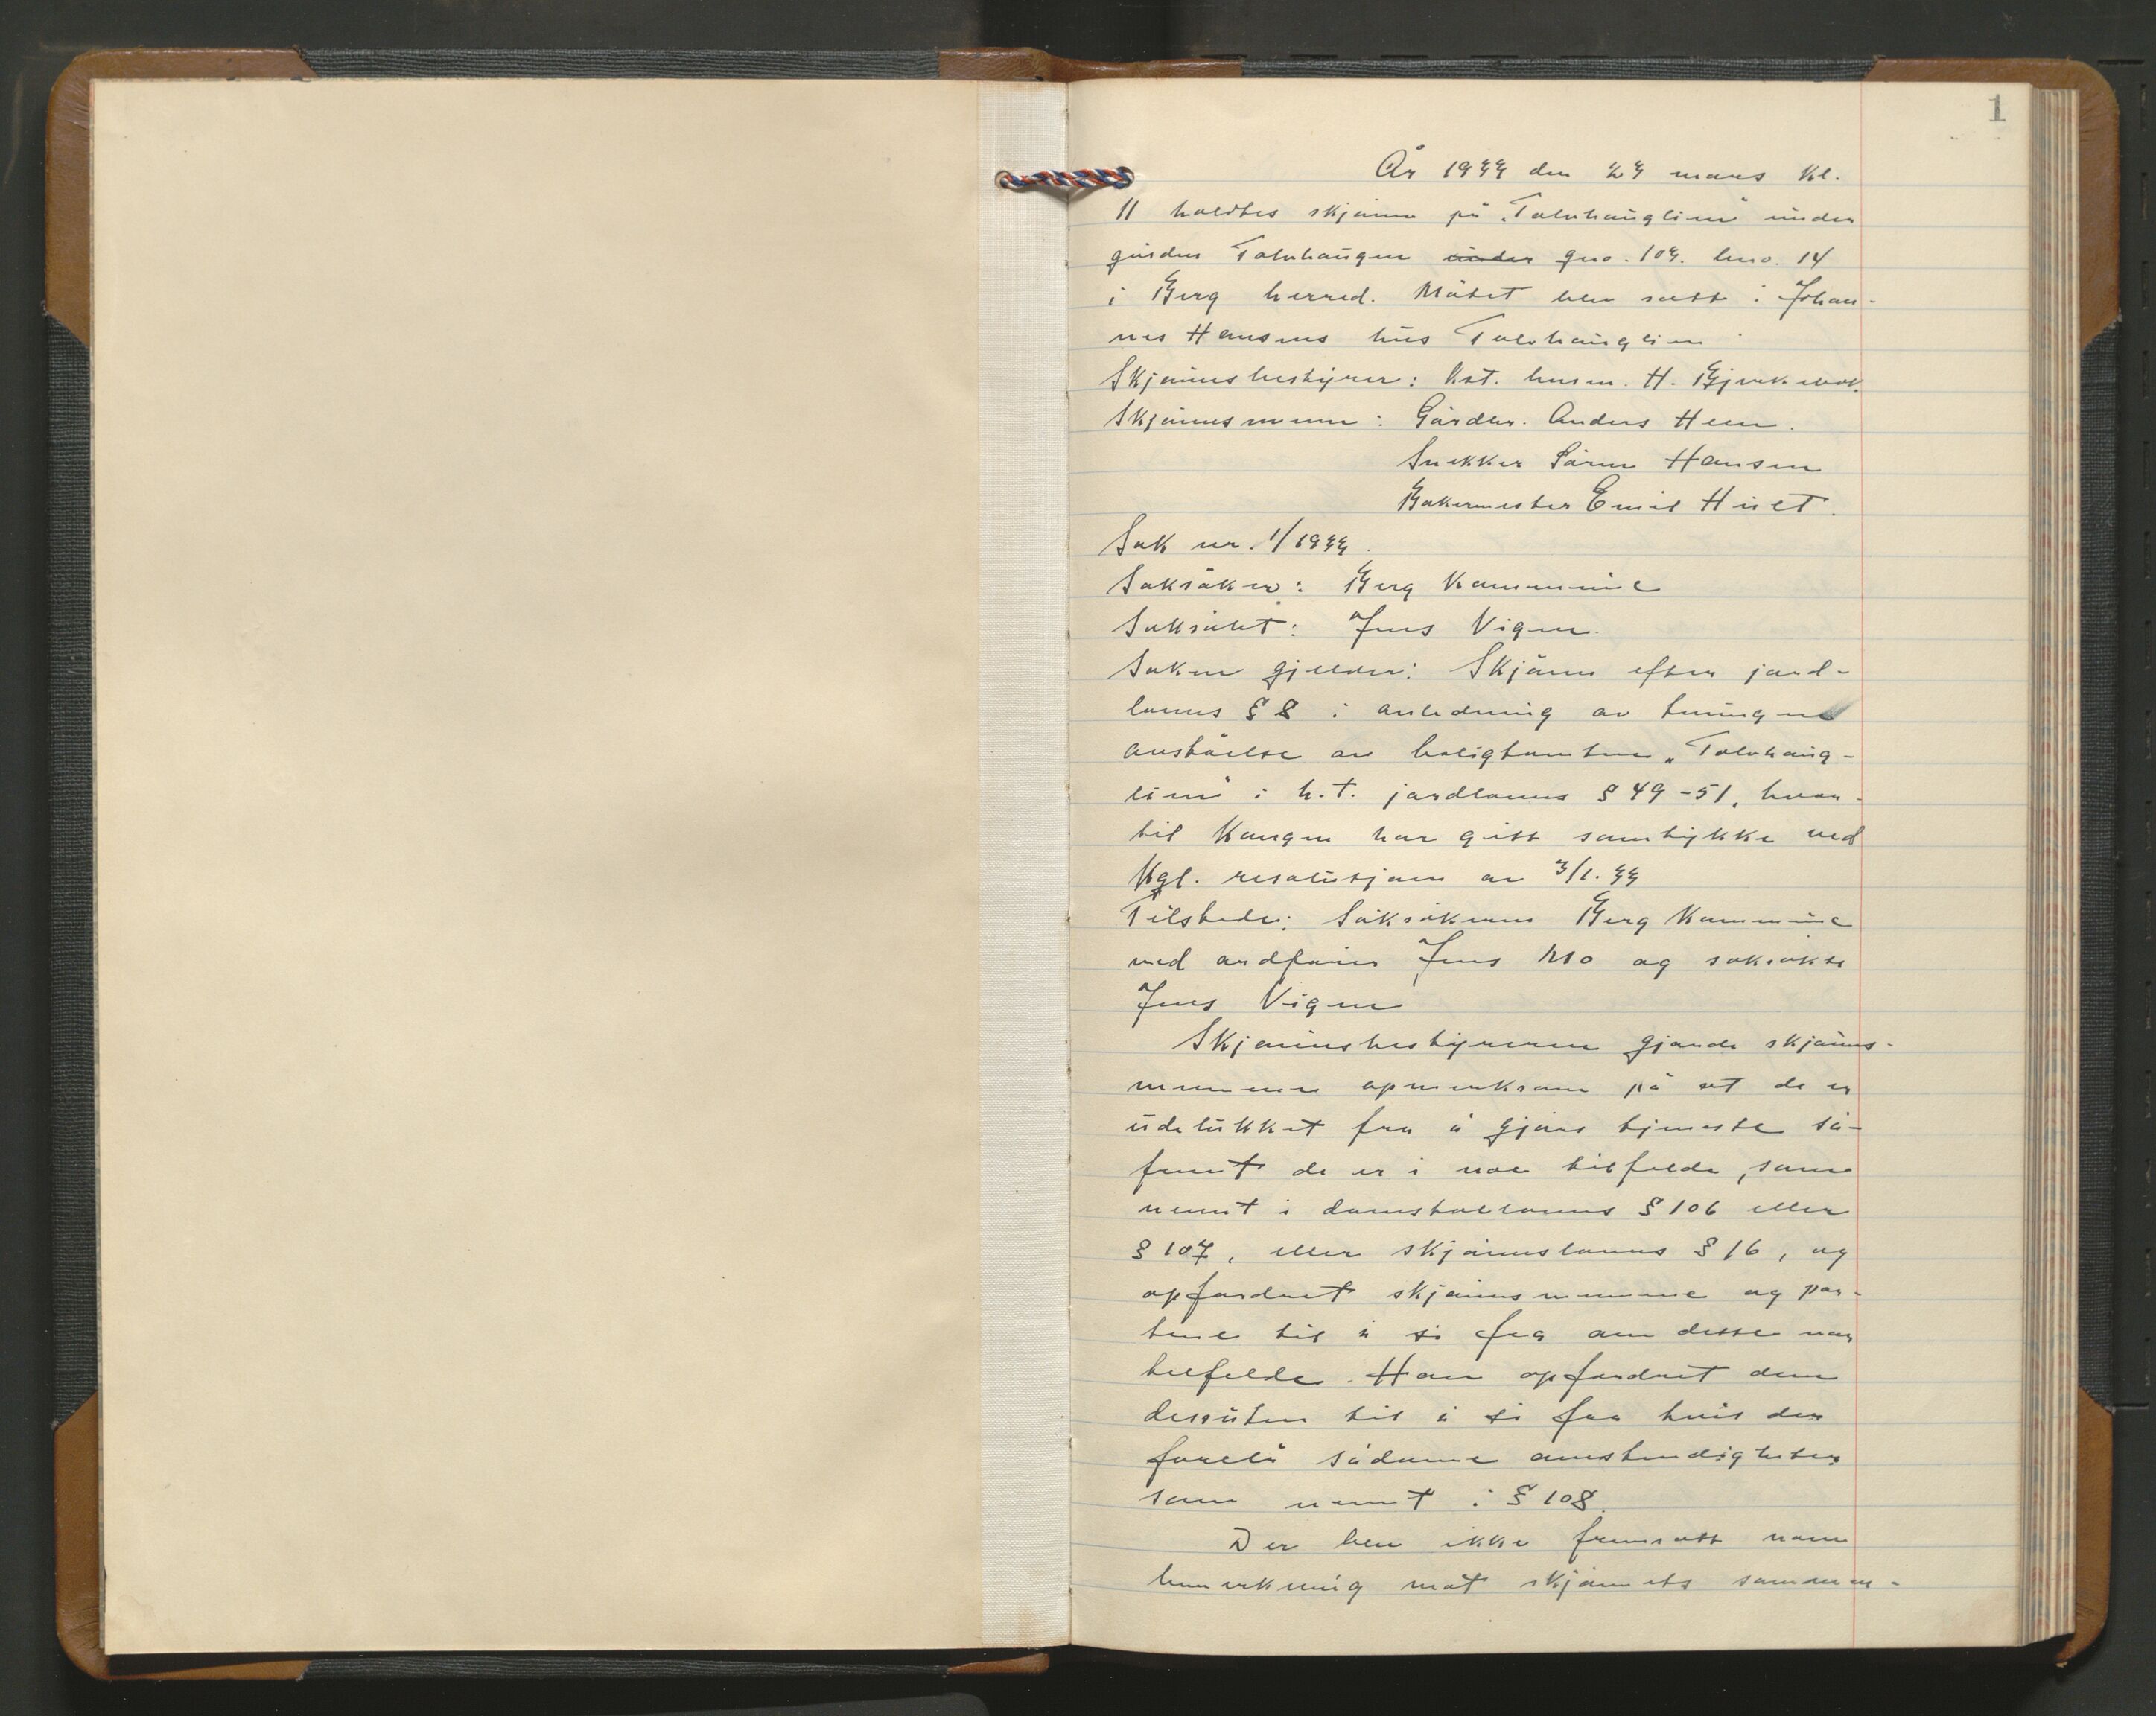 1
År 1944 den 24 mars kl.
11 holdtes skjønn på "Tolvhauglien" under
gården Tolvhaugen under gno. 104. bno. 14
i Berg herred. Møtet blev satt i Johan-
nes Hansens hus Tolvhauglien
Skjønnsbestyrer: Kst. lensm. H.
Skjønnsmenn: Gårdbr. Anders Heen.
Snekker Søren Hansen
Bakermester Emil Hult.
Sak nr. 1/1944.
Saksøker: Berg Kommune
Saksøkt: Jens Vigen.
Saken gjelder: Skjønn efter jord-
lovens § 8 i anledning av tvungen
avståelse av boligtomten "Tolvhaug-
lien" i h.t. jordlovens § 49-51, hvor-
til Kongen har gitt samtykke ved
Kgl. resolusjon av 3/1. 44
Tilstede: Saksøkeren Berg Kommune
ved ordfører Jens Mo og saksøkte
Jens Vigen
Skjønnsbestyreren gjorde skjønns-
mennene opmerksom på at de er
utelukket fra å gjøre tjeneste så-
fremt de er i noe tilfelde, som
nevnt i domstollovens § 106 eller
§ 107, eller skjønnslovens § 16, og
opfordret skjønnsmennene og par-
tene til å si fra om dette var
tilfelde. Han opfordret dem
dessuten til å si fra hvis der
forelå sådanne omstendigheter
som nevnt i § 108.
Der blev ikke fremsatt noen
bemerkning mot skjønnets sammen-